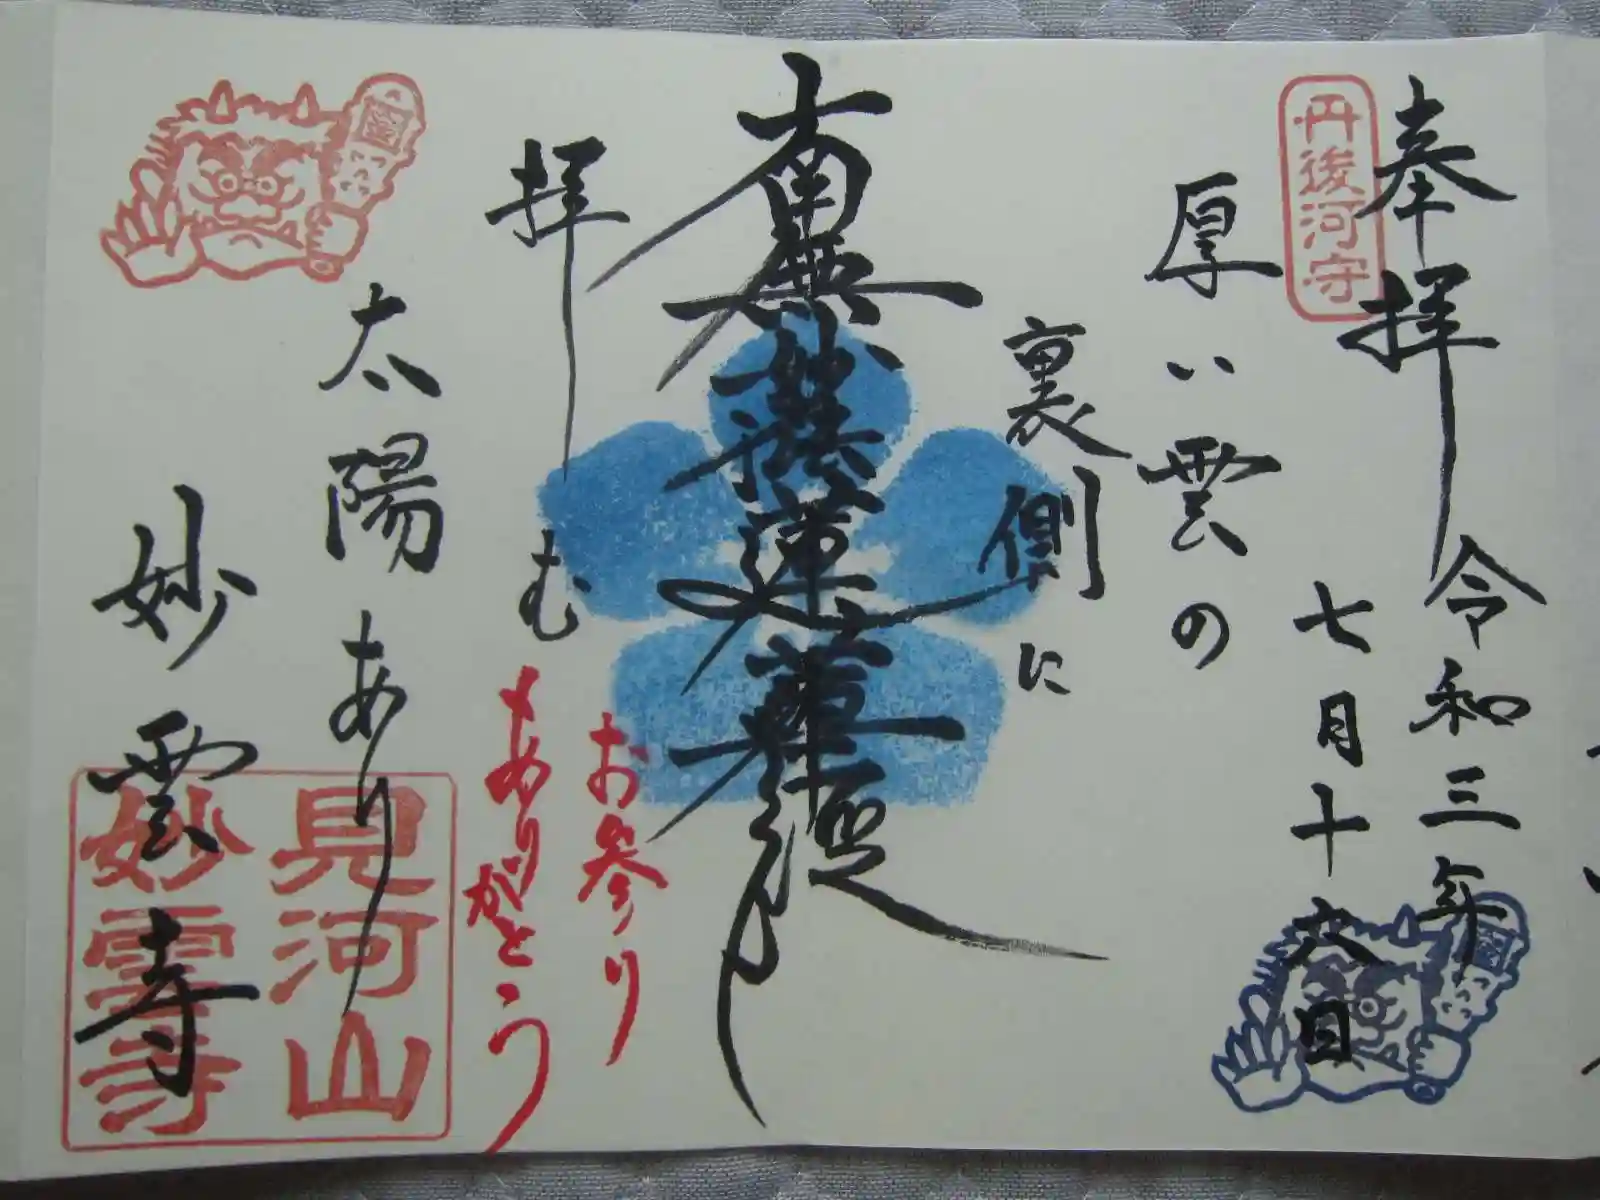 奉拝
令和三年
七月十六日
丹後河守
厚い雲の
裏側に
南無妙法蓮華経
拝む
お参り
ありがとう
太陽あり
妙雲寺
見河山
妙雲寺